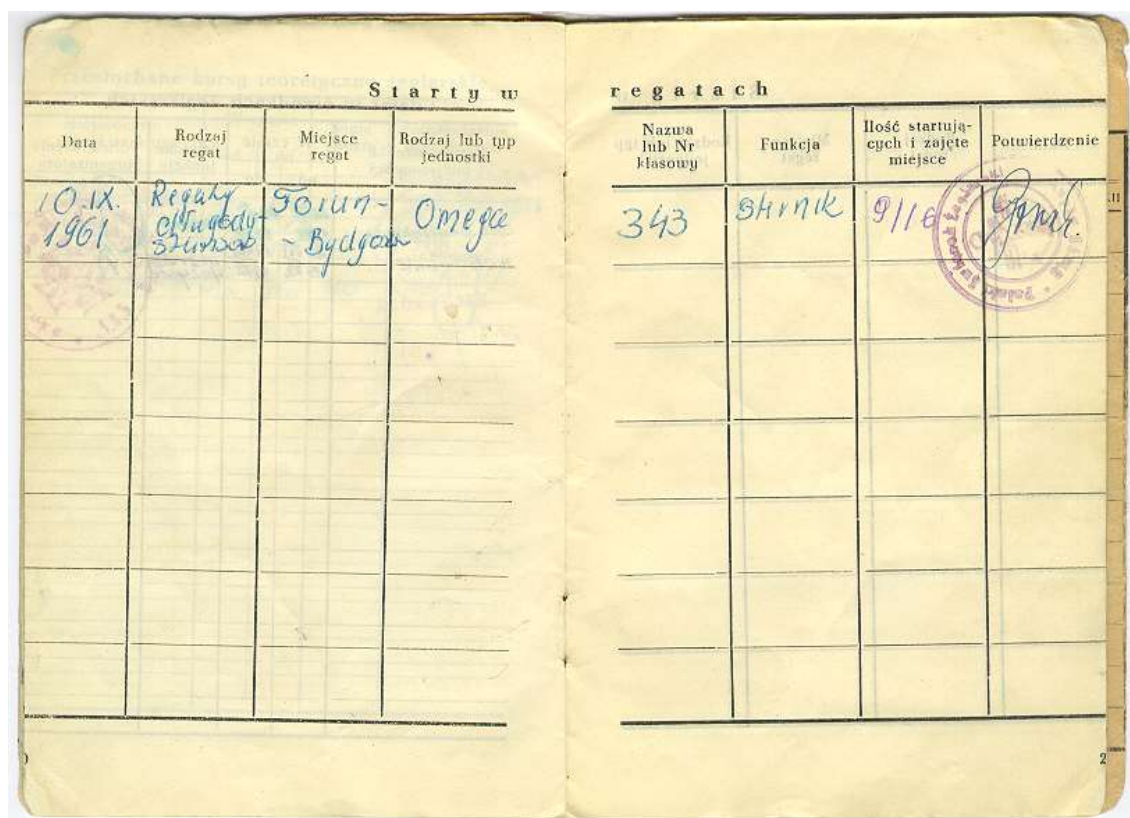 Starty w regatach
Data
Rodzaj
regat
Miejsce
regat
Rodzaj lub typ
jednostki
Nazwa
lub Nr
klasowy
Funkcja
Ilość startują-
cych i zajęte
miejsce
Potwierdzenie
10.IX.
1961
Regaty
długody-
stansow
Toruń-
- Bydgoszcz
Omega
343
sternik
9/16
2